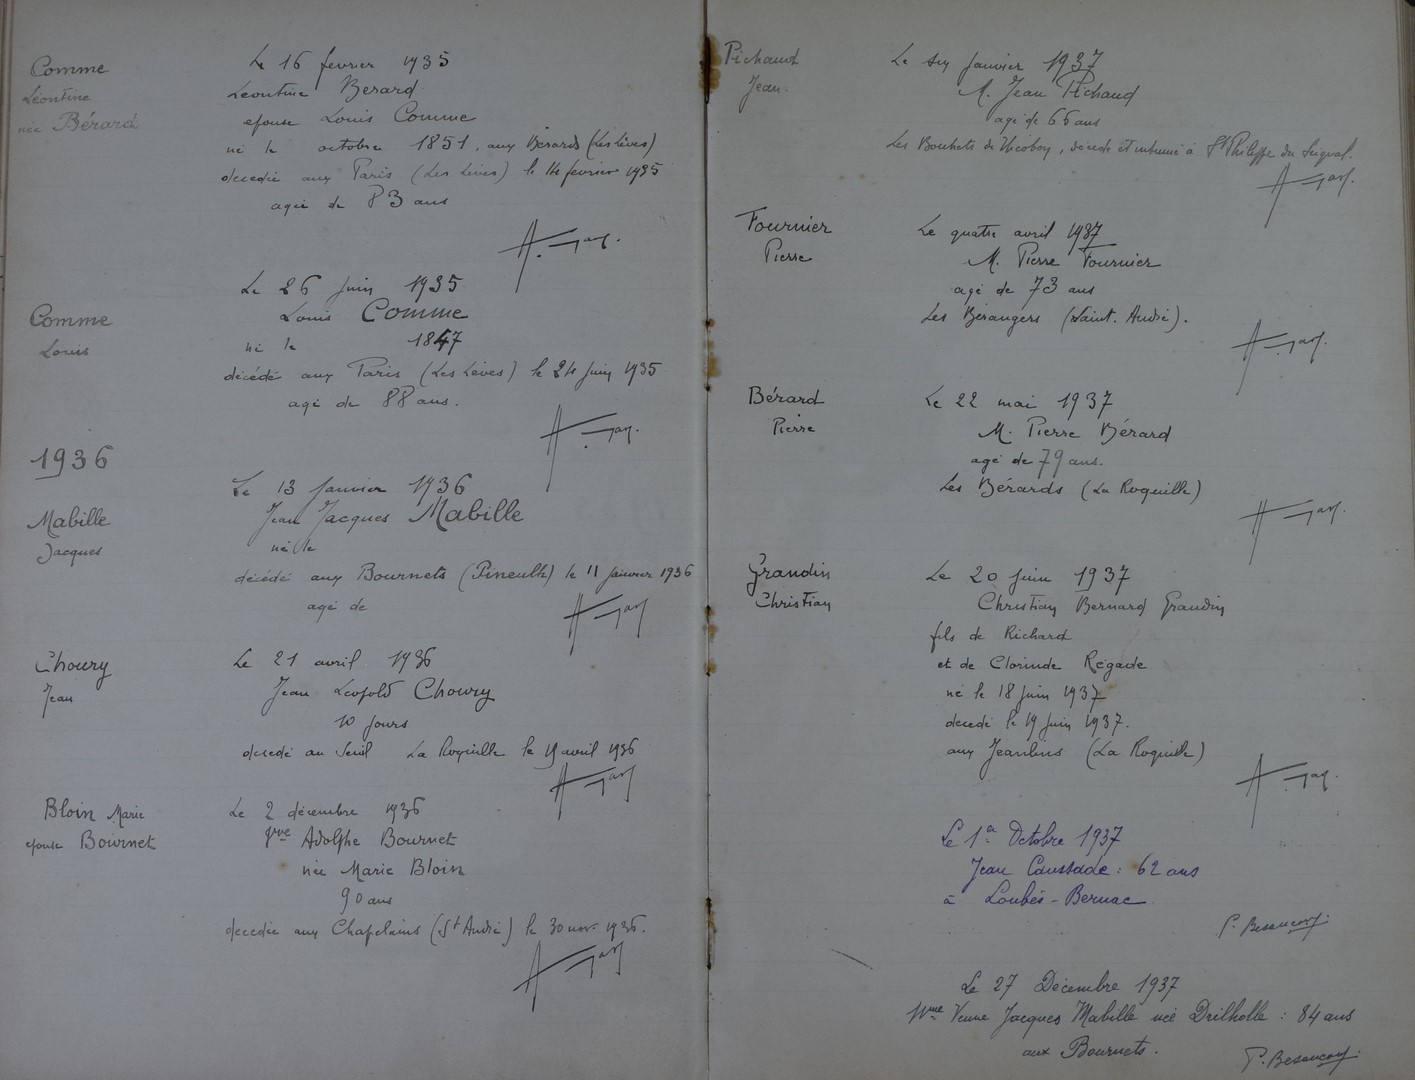 Comme
Léontine
née Bérard
Le 16 fevrier 1935
Léontine Berard
epouse Louis Comme
né le octobre 1851, aux Bérards (Les Lèves)
decedée aux Paris (Les Lèves) le 14 fevrier 1935
agée de 83 ans
Comme
Louis
Le 26 Juin 1935
Louis Comme
né le 1847
décédé aux Paris (Les Lèves) le 24 Juin 1935
agé de 88 ans.
1936
Mabille
Jacques
Le 13 Janvier 1936
Jean Jacques Mabille
né le
décédé aux Bournets (Pineuilh) le 11 Janvier 1936
agé de
Choury
Jean
Le 21 avril 1936
Jean Leopold Choury
10 Jours
decedé au Seuil La Roquille le 19 avril 1936
Bloin Marie
epouse Bournet
Le 2 décembre 1936
Vve Adolphe Bournet
née Marie Bloin
90 ans
decedée aux Chapelains (St André) le 30 nov. 1936.
Pichaud
Jean.
Le Janvier 1937
M. Jean Pichaud
agé de 66 ans
Les Bouhets de, décédé et inhumé à St Philippe du Seignal.
Fournier
Pierre
Le quatre avril 1937
M. Pierre Fournier
agé de 73 ans
Les Bérangers (Saint. André).
Bérard
Pierre
Le 22 mai 1937
M. Pierre Bérard
agé de 79 ans.
Les Bérards (La Roquille)
Grandin
Christian
Le 20 Juin 1937
Christian Bernard Grandin
fils de Richard
et de Clorinde Régade
né le 18 Juin 1937
decedé le 19 Juin 1937.
aux Jeanbins (La Roquille)
Le 1er Octobre 1937
Jean Caussade : 62 ans
à Loubès-Bernac
P. Besançon
Le 27 Décembre 1937
Mme Veuve Jacques Mabille née Drilholle : 84 ans
aux Bournets.
P. Besançon